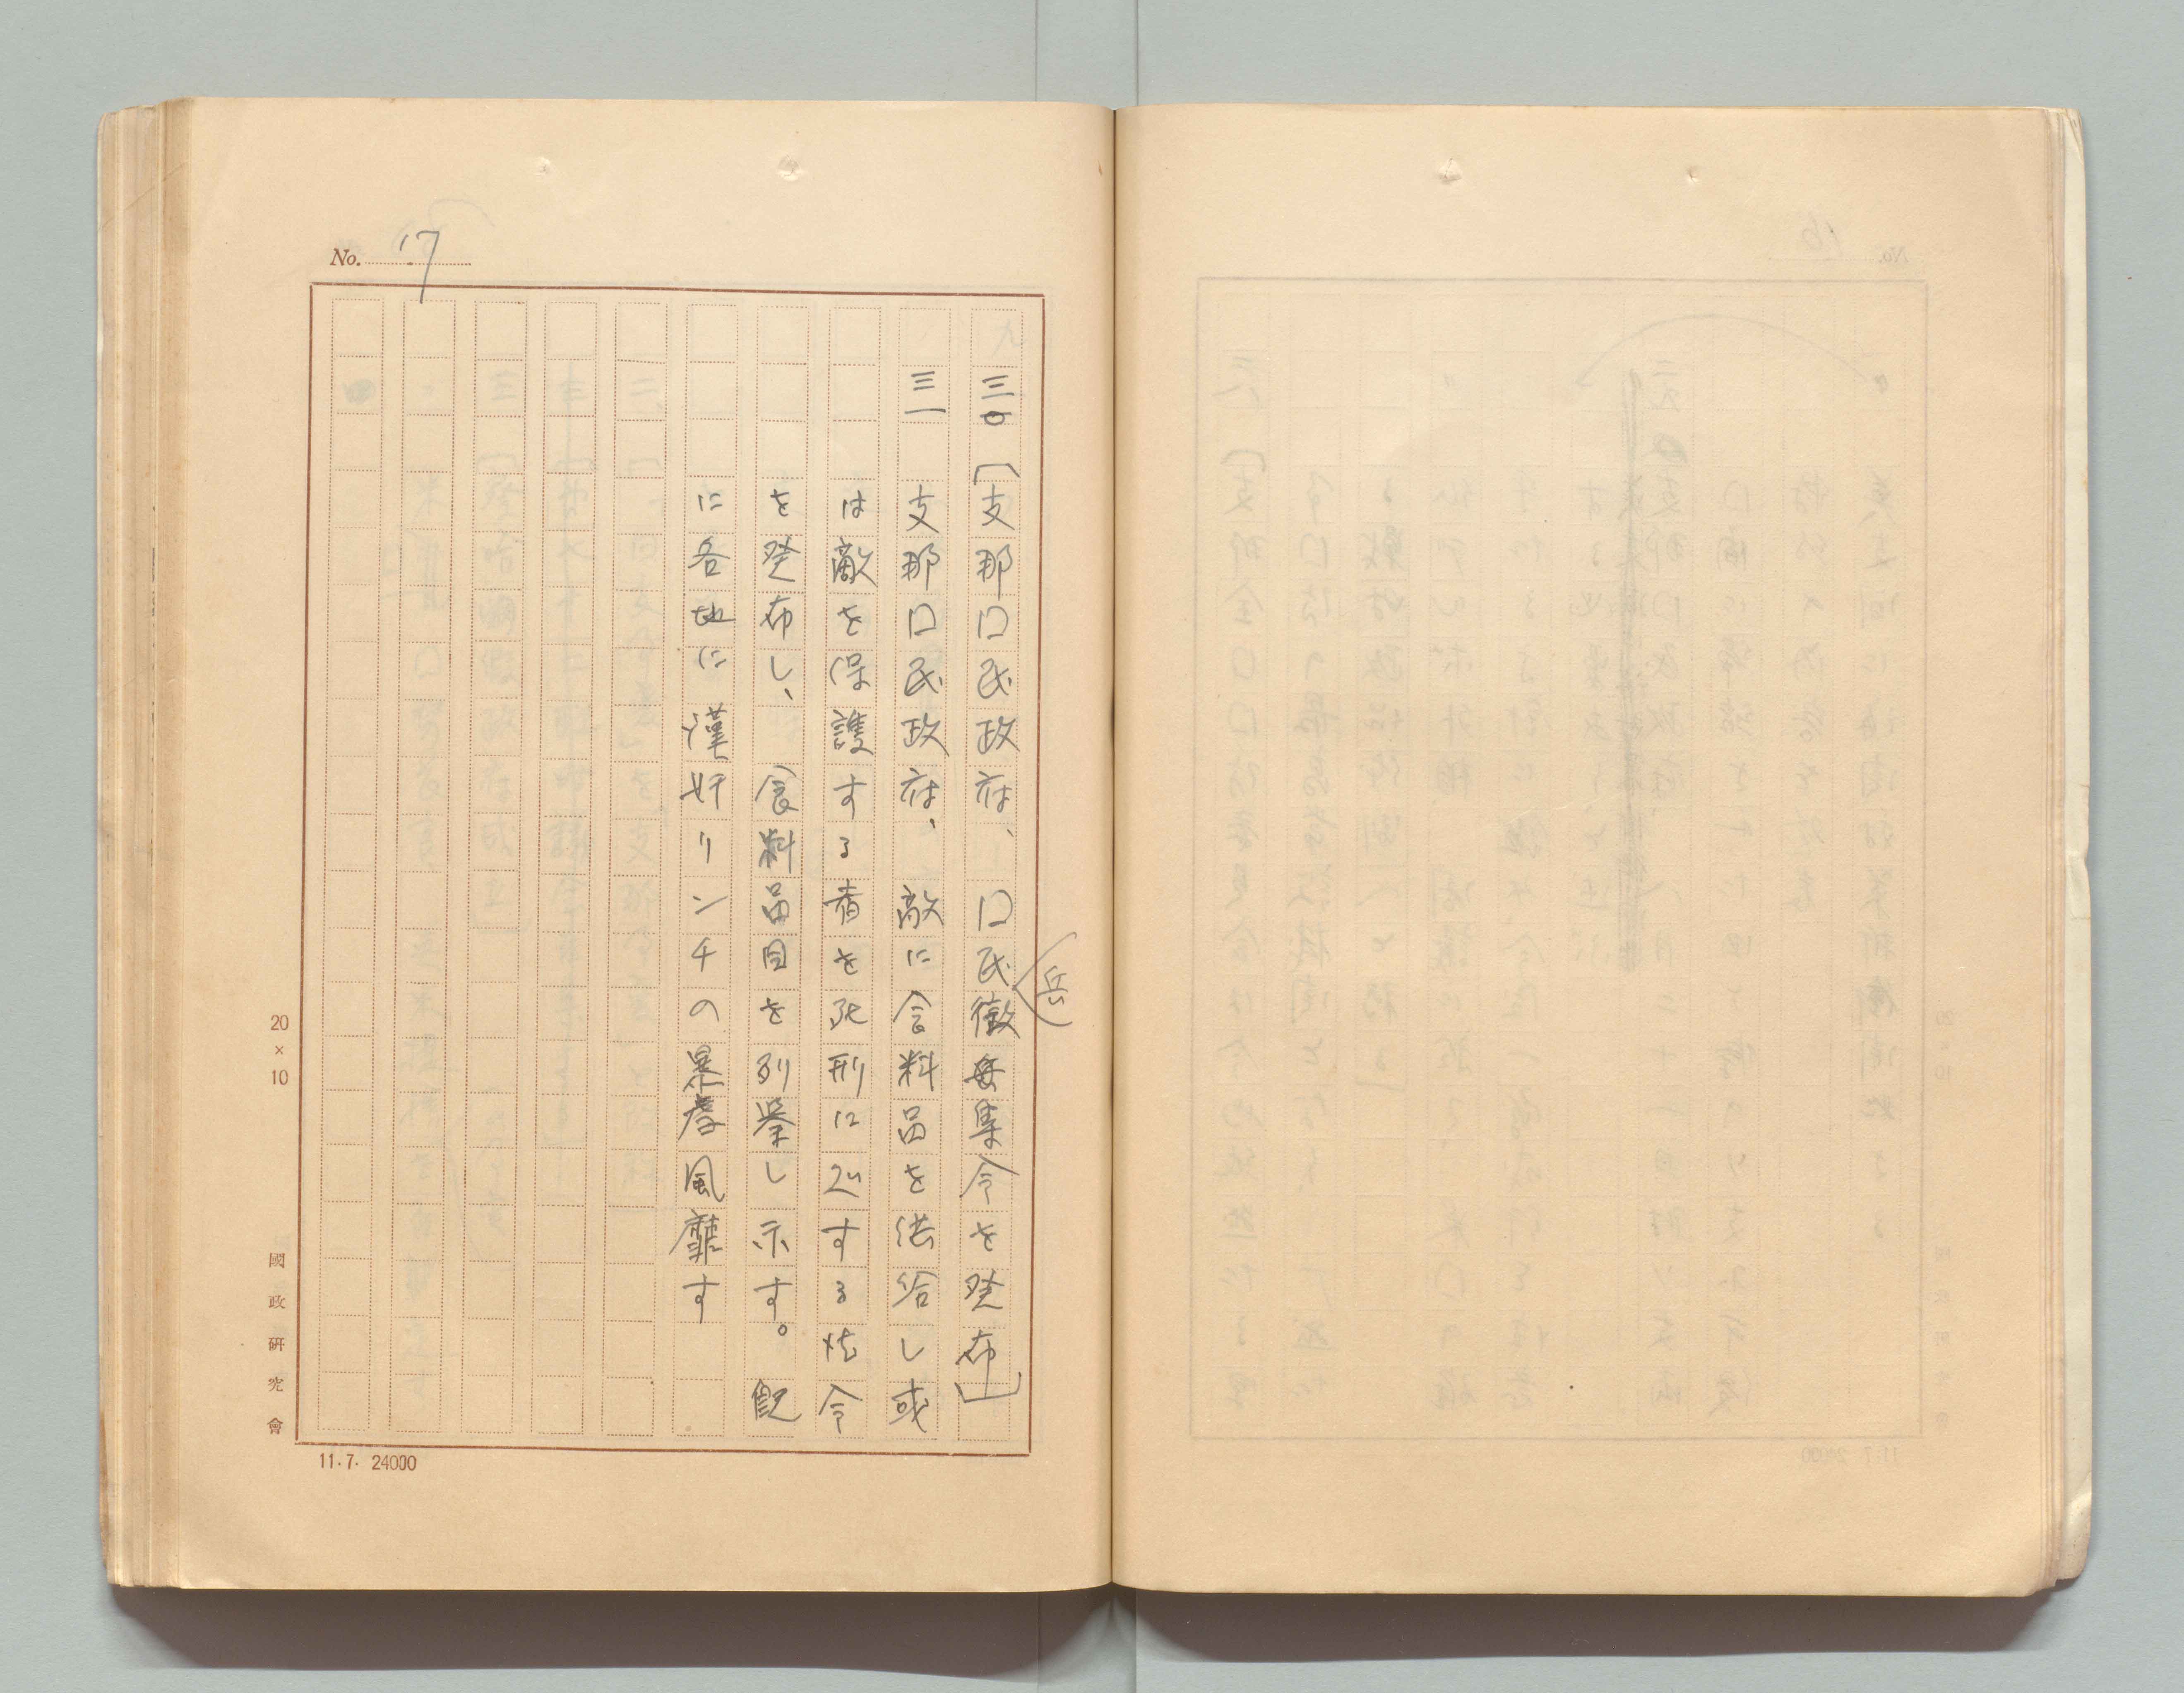 No. 17
三〇「支那口民政府、口民徴兵募集令を発布」
三一　支那口民政府、敵に食料品を供給し或
は敵を保護する者を死刑に処する法令
を発布し、食料品目を列挙し示す。既
に各地に漢奸リンチの暴虐風靡す
20×10
國政研究會
11.7. 24000